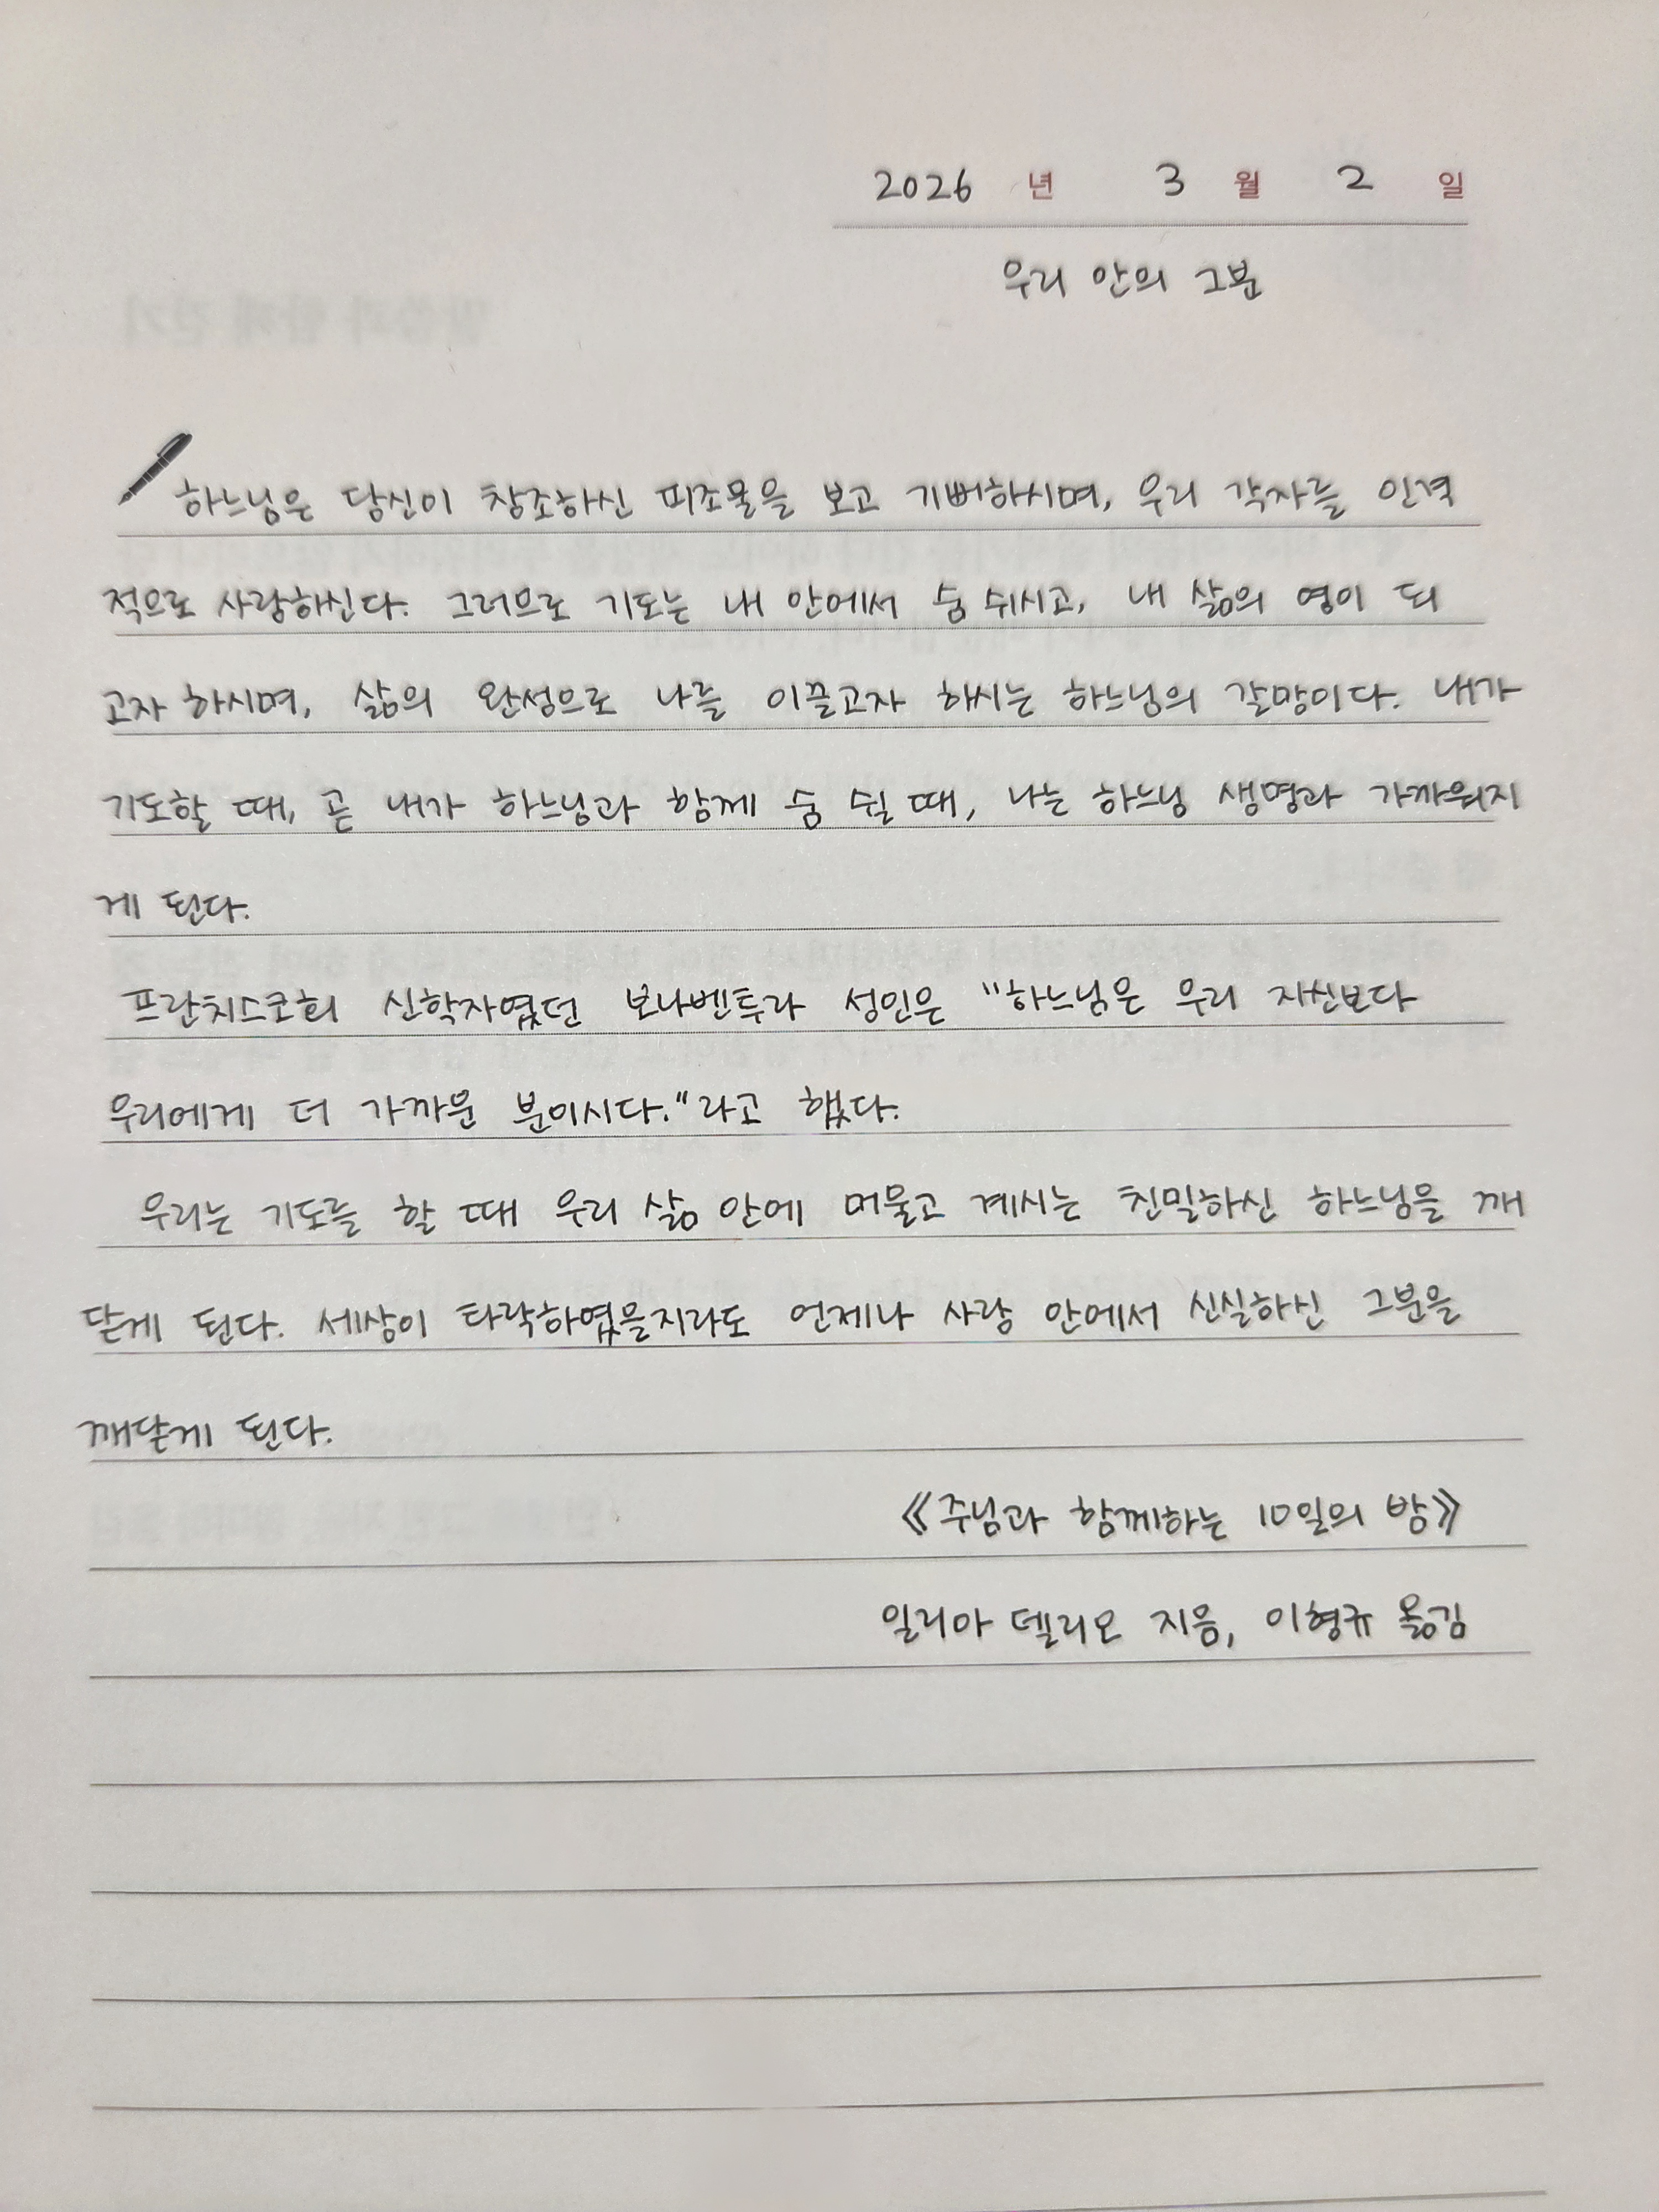 2026 년 3 월 2 일
우리 안의 그분
하느님은 당신이 창조하신 피조물을 보고 기뻐하시며, 우리 각자를 인격
적으로 사랑하신다. 그러므로 기도는 내 안에서 숨 쉬시고, 내 삶의 영이 되
고자 하시며, 삶의 완성으로 나를 이끌고자 하시는 하느님의 갈망이다. 내가
기도할 때, 곧 내가 하느님과 함께 숨 쉴 때, 나는 하느님 생명과 가까워지
게 된다.
프란치스코회 신학자였던 보나벤투라 성인은 "하느님은 우리 자신보다
우리에게 더 가까운 분이시다."라고 했다.
우리는 기도를 할 때 우리 삶 안에 머물고 계시는 친밀하신 하느님을 깨
닫게 된다. 세상이 타락하였을지라도 언제나 사랑 안에서 신실하신 그분을
깨닫게 된다.
《주님과 함께하는 10일의 밤》
일리아 델리오 지음, 이형규 옮김